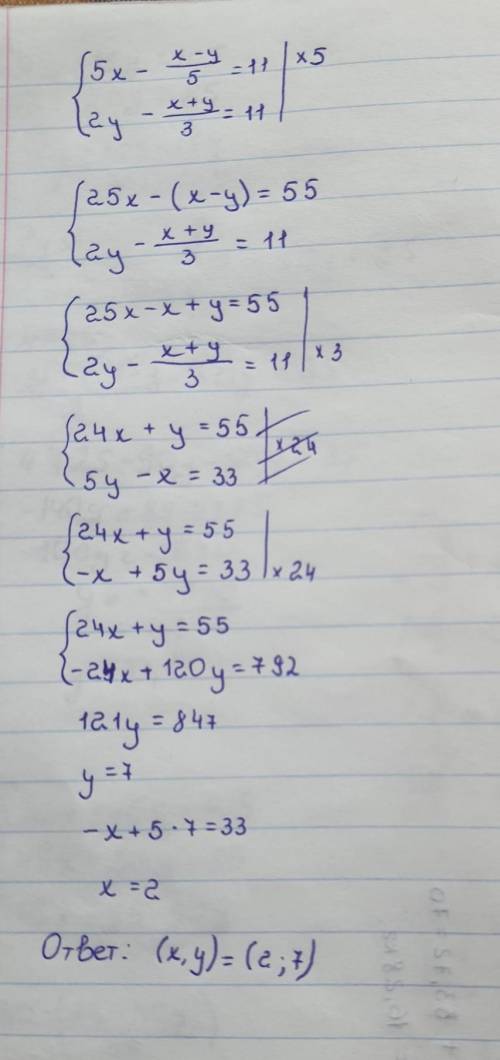 {5x - (x-y)/5 = 11 | ×5
{2y - (x+y)/3 = 11
{25x - (x-y) = 55
{2y - (x+y)/3 = 11
{25x - x + y = 55
{2y - (x+y)/3 = 11 | ×3
{24x + y = 55 | ×24
{5y - x = 33
{24x + y = 55
{-x + 5y = 33 | ×24
{24x + y = 55
{-24x + 120y = 792
121y = 847
y = 7
-x + 5·7 = 33
x = 2
Ответ: (x,y) = (2;7)